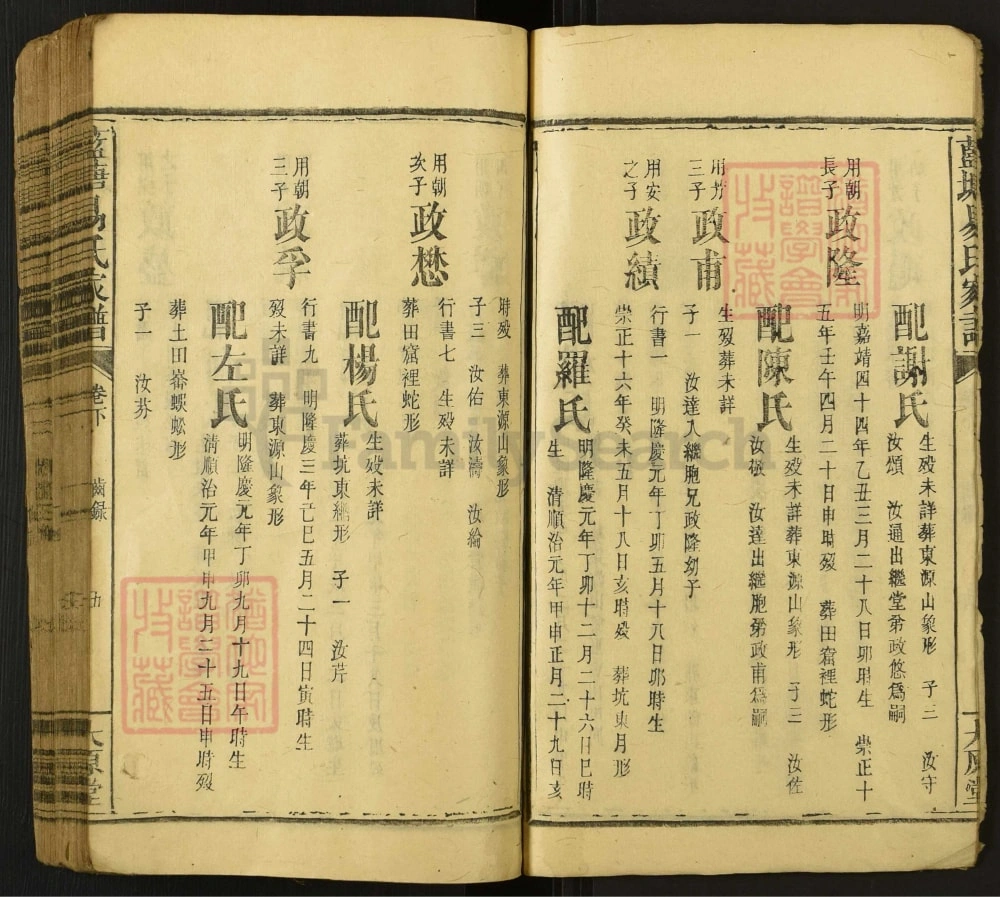 藍塘易氏家譜
太原堂
配謝氏
生歿未詳葬東源山象形 子三 汝守
汝頌 汝通出繼堂弟政悠爲嗣
用朝
長子
政隆
明嘉靖四十四年乙丑三月二十八日卯時生 崇正十
五年壬午四月二十日申時歿 葬田窟裡蛇形
配陳氏
生歿未詳葬東源山象形 子三 汝佐
汝 汝達出繼胞弟政甫爲嗣
用
三子
政甫
生歿葬未詳
子一 汝達入繼胞兄政隆幼子
用安
之子
政績
行書一 明隆慶元年丁卯五月十八日卯時生
崇正十六年癸未五月十八日亥時歿 葬坑東月形
配羅氏
明隆慶元年丁卯十二月二十六日巳時
生 清順治元年甲申正月二十九日亥
時歿 葬東源山象形
子三 汝佑 汝濤 汝綸
用朝
次子
政懋
行書七 生歿未詳
葬田窟裡蛇形
配楊氏
生歿未詳
葬坑東網形 子一 汝芹
用朝
三子
政孚
行書九 明隆慶三年己巳五月二十四日寅時生
歿未詳 葬東源山象形
配左氏
明隆慶元年丁卯九月十九日午時生
清順治元年甲申九月二十五日申時歿
葬土田塞蜈蚣形
子一 汝芬
藍塘易氏家譜
卷下 齒錄
太原堂
FamilySearch